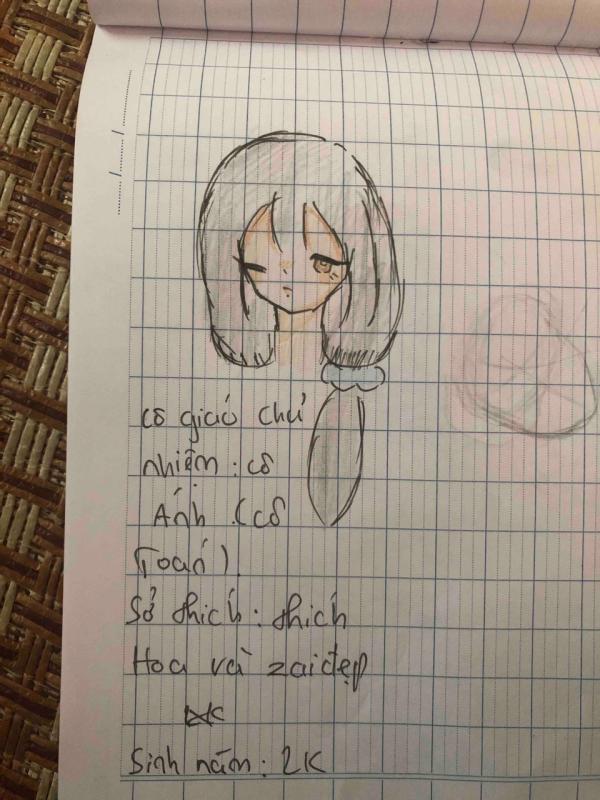 cô giáo chủ
nhiệm : cô
Ánh .(cô
Toán).
Sở thích : thích
Hoa và zai đẹp
Sinh năm : 2K